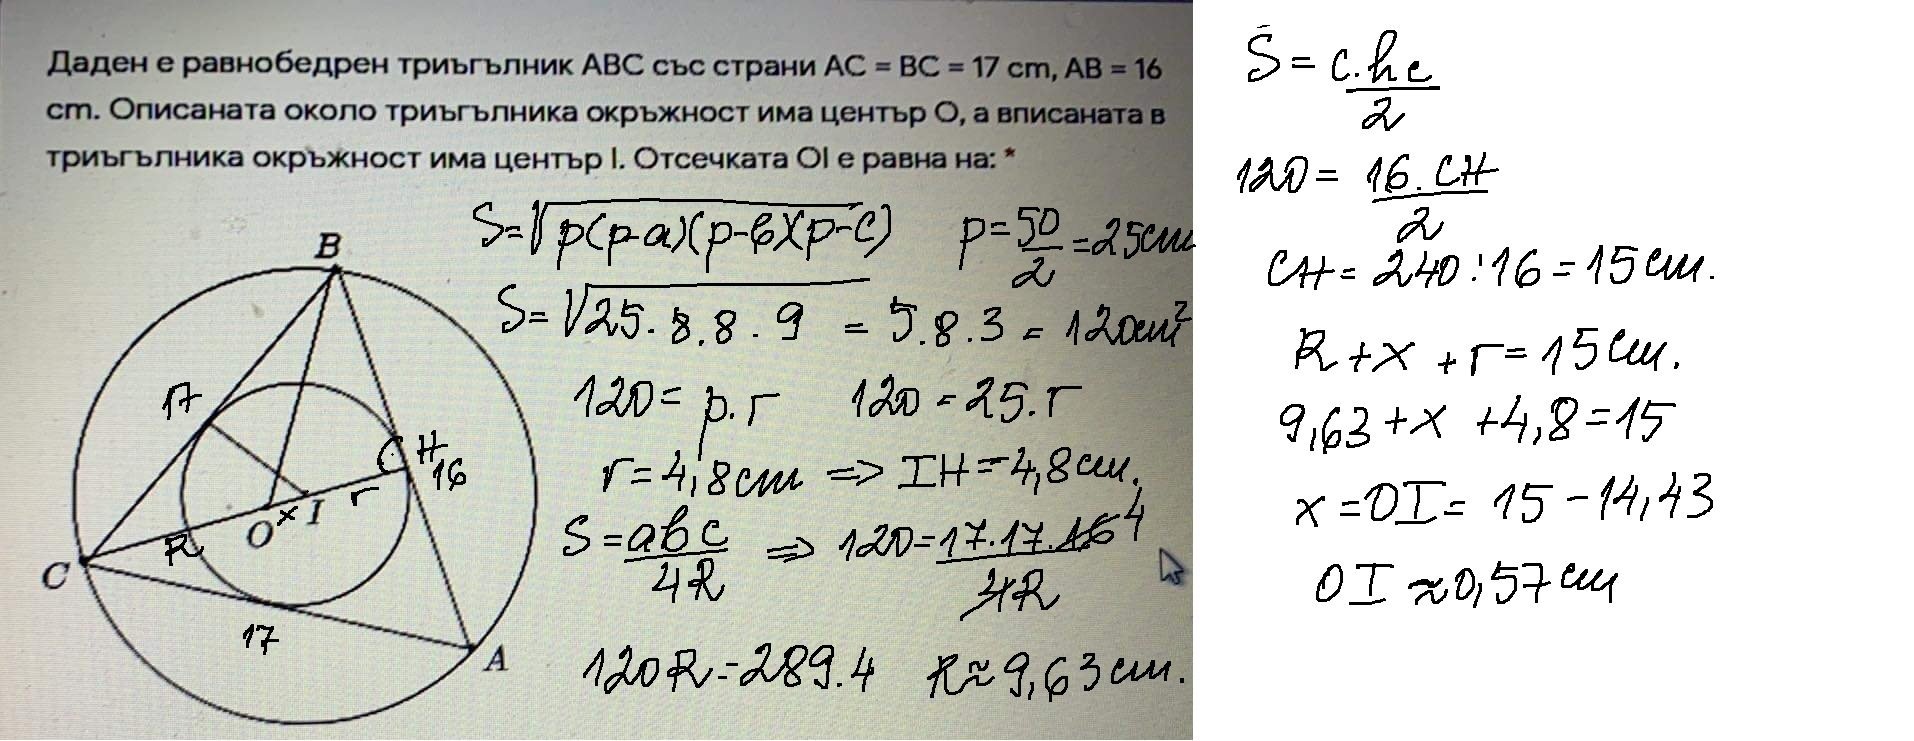 Даден е равнобедрен триъгълник ABC със страни AC = BC = 17 cm, AB = 16
cm. Описаната около триъгълника окръжност има център O, а вписаната в
триъгълника окръжност има център I. Отсечката OI е равна на: *
S=√p(p-a)(p-в)(p-c) p=50/2=25cm
S=√25.8.8.9 = 5.8.3 = 120cm²
120= p.r 120=25.r
r=4,8cm => IH=4,8cm.
S=abc/4R => 120=17.17.16 4/4R
120R=289.4 R≈9,63cm.
B
17
H
16
r
O
x
I
R
C
17
A
S=c.hc/2
120=16.CH/2
CH=240:16=15cm.
R+x+r=15cm.
9,63+x+4,8=15
x=OI=15-14,43
OI≈0,57cm